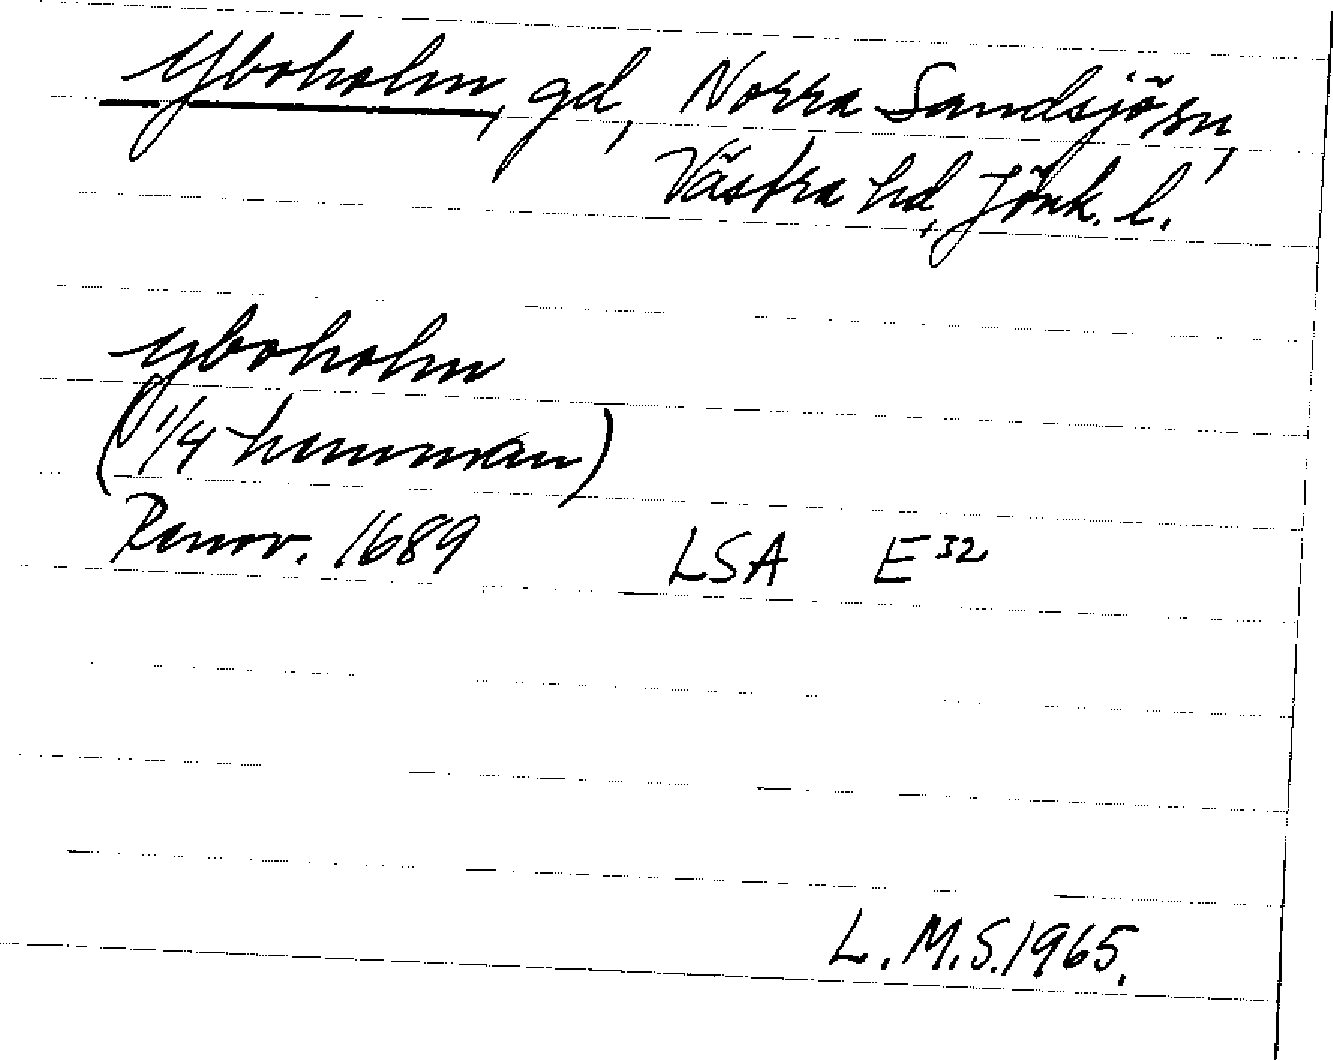 Yboholm, gd, Norra Sandsjö sn,
Västra hd, Jönk. l.
Yboholm
(1/4 hemman)
Renov. 1689 LSA E32
L.M.S. 1965.